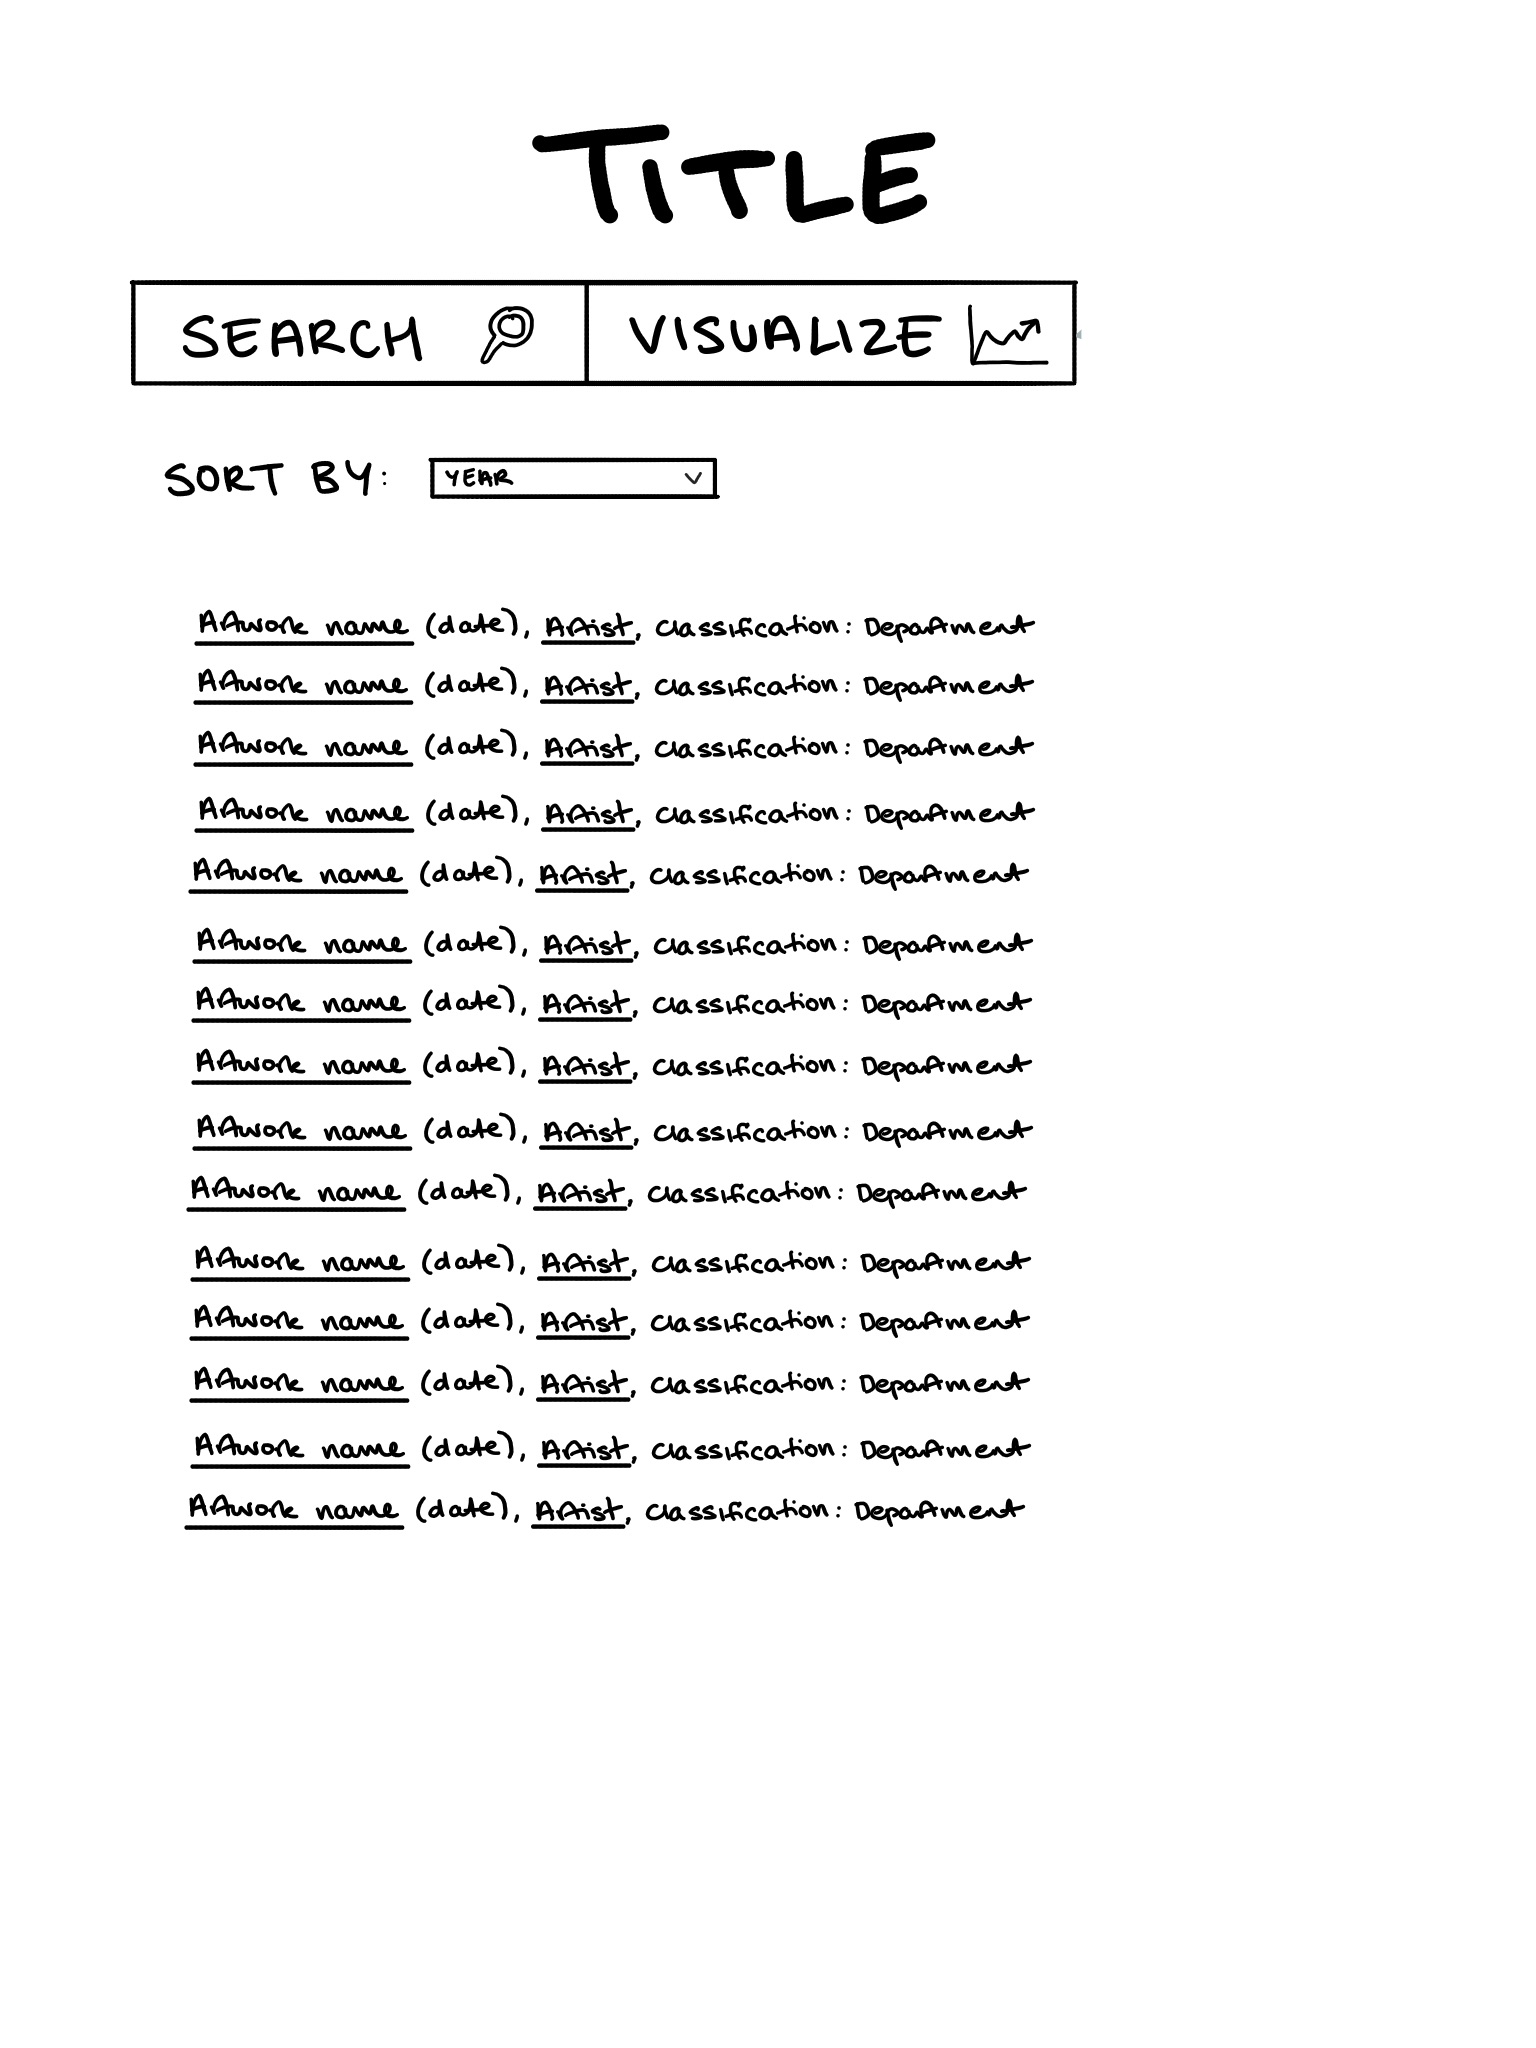 TITLE
SEARCH VISUALIZE
SORT BY: YEAR
Artwork name (date), Artist, Classification: Department
Artwork name (date), Artist, Classification: Department
Artwork name (date), Artist, Classification: Department
Artwork name (date), Artist, Classification: Department
Artwork name (date), Artist, Classification: Department
Artwork name (date), Artist, Classification: Department
Artwork name (date), Artist, Classification: Department
Artwork name (date), Artist, Classification: Department
Artwork name (date), Artist, Classification: Department
Artwork name (date), Artist, Classification: Department
Artwork name (date), Artist, Classification: Department
Artwork name (date), Artist, Classification: Department
Artwork name (date), Artist, Classification: Department
Artwork name (date), Artist, Classification: Department
Artwork name (date), Artist, Classification: Department